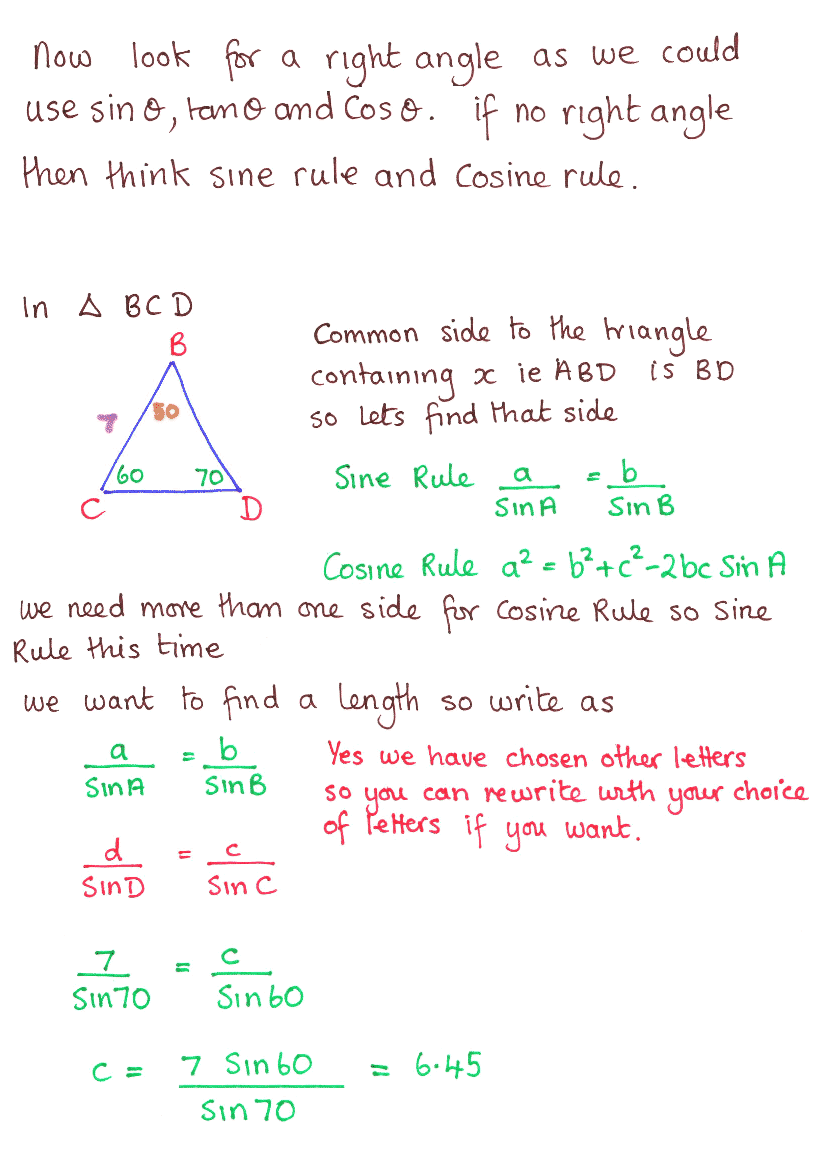 Now look for a right angle as we could
use sin θ, tan θ and Cos θ. if no right angle
then think sine rule and Cosine rule.
In △ BCD
B
7
50
60
70
C
D
Common side to the triangle
containing x ie ABD is BD
so Lets find that side
Sine Rule a/SinA = b/SinB
Cosine Rule a² = b²+c²-2bc Sin A
we need more than one side for Cosine Rule so Sine
Rule this time
we want to find a length so write as
a/SinA = b/SinB
Yes we have chosen other letters
so you can rewrite with your choice
of letters if you want.
d/SinD = c/Sin C
7/Sin70 = c/Sin60
c = 7 Sin60/Sin70 = 6.45